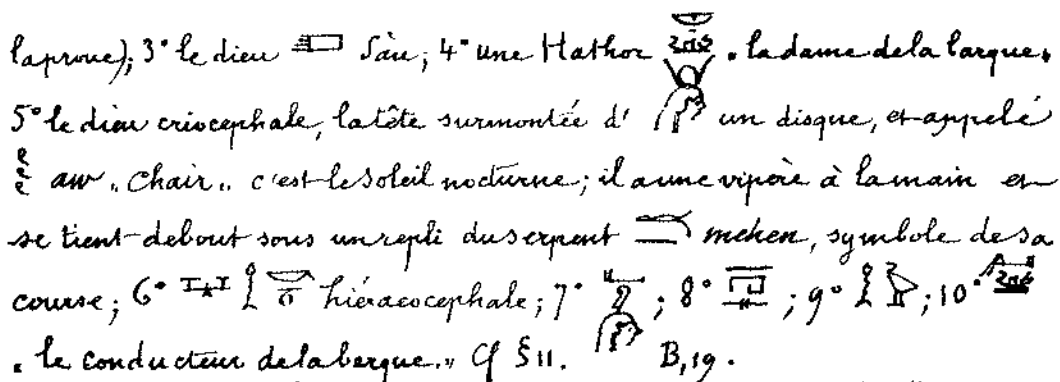 la proue); 3° le dieu Sàu; 4° une Hathor „ la dame de la barque „
5° le dieu criocephale, la tête surmontée d' un disque, et appelé
aw „ Chair „ c'est le soleil nocturne; il a une vipère à la main et
se tient debout sous un repli du serpent mehen, symbole de sa
course; 6° hiéracocephale; 7° ; 8° ; 9° ; 10°
„ le conducteur de la barque „ Cf § 11. B, 19.